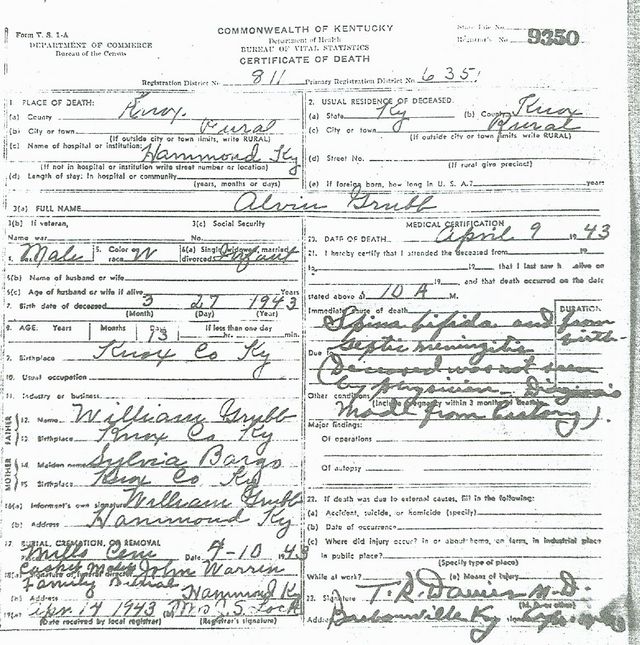 Form V. S. 1-A
DEPARTMENT OF COMMERCE
Bureau of the Census
COMMONWEALTH OF KENTUCKY
Department of Health
BUREAU OF VITAL STATISTICS
CERTIFICATE OF DEATH
State File No.
Registrar's No. 9350
Registration District No. 811 Primary Registration District No. 6351
1. PLACE OF DEATH:
(a) County Knox
(b) City or town Rural
(If outside city or town limits, write RURAL)
(c) Name of hospital or institution: Hammond Ky
(If not in hospital or institution write street number or location)
(d) Length of stay: In hospital or community
(years, months or days)
2. USUAL RESIDENCE OF DECEASED:
(a) State Ky (b) County Knox
(c) City or town Rural
(If outside city or town limits write RURAL)
(d) Street No.
(If rural give precinct)
(e) If foreign born, how long in U. S. A.? years
3(a) FULL NAME Alvin Grubb
3(b) If veteran,
Name war
3(c) Social Security
No.
4. Male 5. Color or race W 6(a) Single, widowed, married, divorced Infant
6(b) Name of husband or wife
6(c) Age of husband or wife if alive Years
7. Birth date of deceased 3 27 1943
(Month) (Day) (Year)
8. AGE: Years Months Days 13 If less than one day hr. min.
9. Birthplace Knox Co Ky
10. Usual occupation
11. Industry or business
FATHER
12. Name William Grubb
13. Birthplace Knox Co Ky
MOTHER
14. Maiden name Sylvia Bargo
15. Birthplace Knox Co Ky
16(a) Informant's own signature William Grubb
(b) Address Hammond Ky
17. BURIAL, CREMATION, OR REMOVAL
Place Mills Cem Date 4-10 1943
Casket Made John Warren
18(a) Signature of funeral director
Family Burial
(b) Address Hammond Ky
19(a) Apr 14 1943 (b) Mrs T. S. Lock
(Date received by local registrar) (Registrar's signature)
MEDICAL CERTIFICATION
20. DATE OF DEATH April 9 1943
21. I hereby certify that I attended the deceased from 19
19 19 that I last saw h alive on
19 and that death occurred on the date
stated above at 10 A M.
Immediate cause of death
DURATION
Spina bifida and from
septic meningitis birth
Due to
(Deceased was not seen
by physician Diagnosis
Other conditions
(Include pregnancy within 3 months of death)
made from history).
Major findings:
Of operations
Of autopsy
22. If death was due to external causes, fill in the following:
(a) Accident, suicide, or homicide (specify)
(b) Date of occurrence
(c) Where did injury occur? in or about home, on farm, in industrial place
in public place?
(Specify type of place)
While at work? (e) Means of injury
23. Signature T. R. Davies M.D.
(M. D. or other)
Address Barbourville Ky